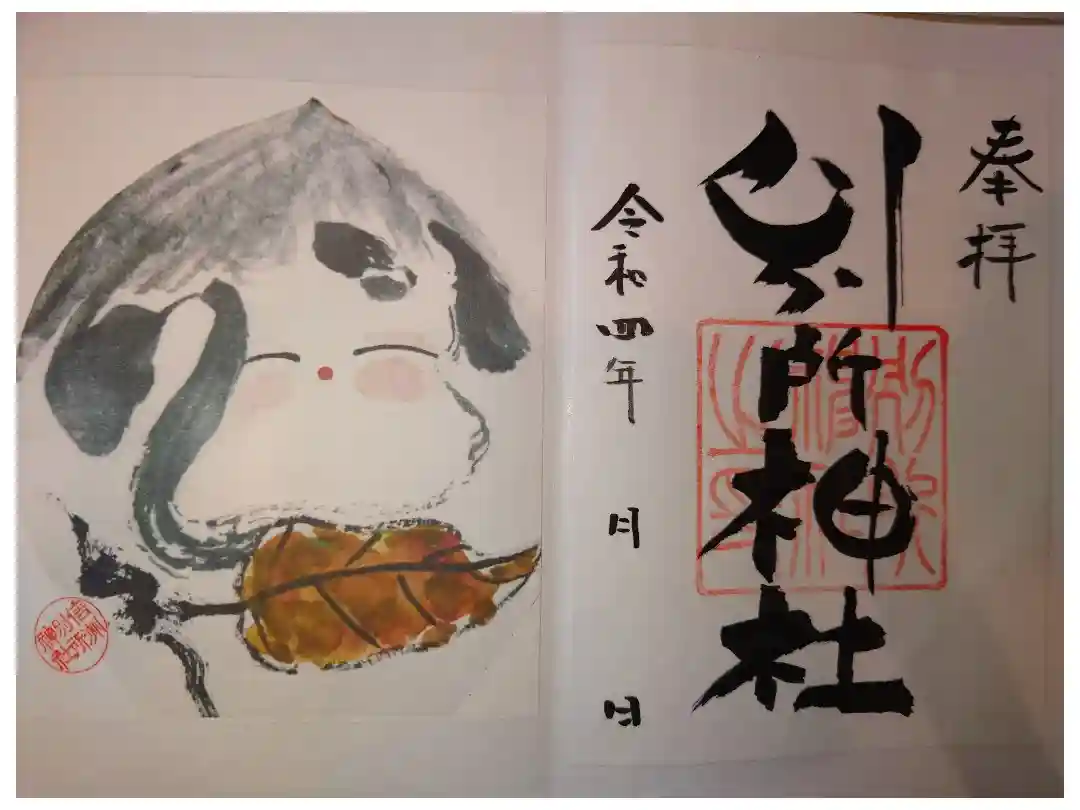 奉拝
別所神社
令和四年 月 日